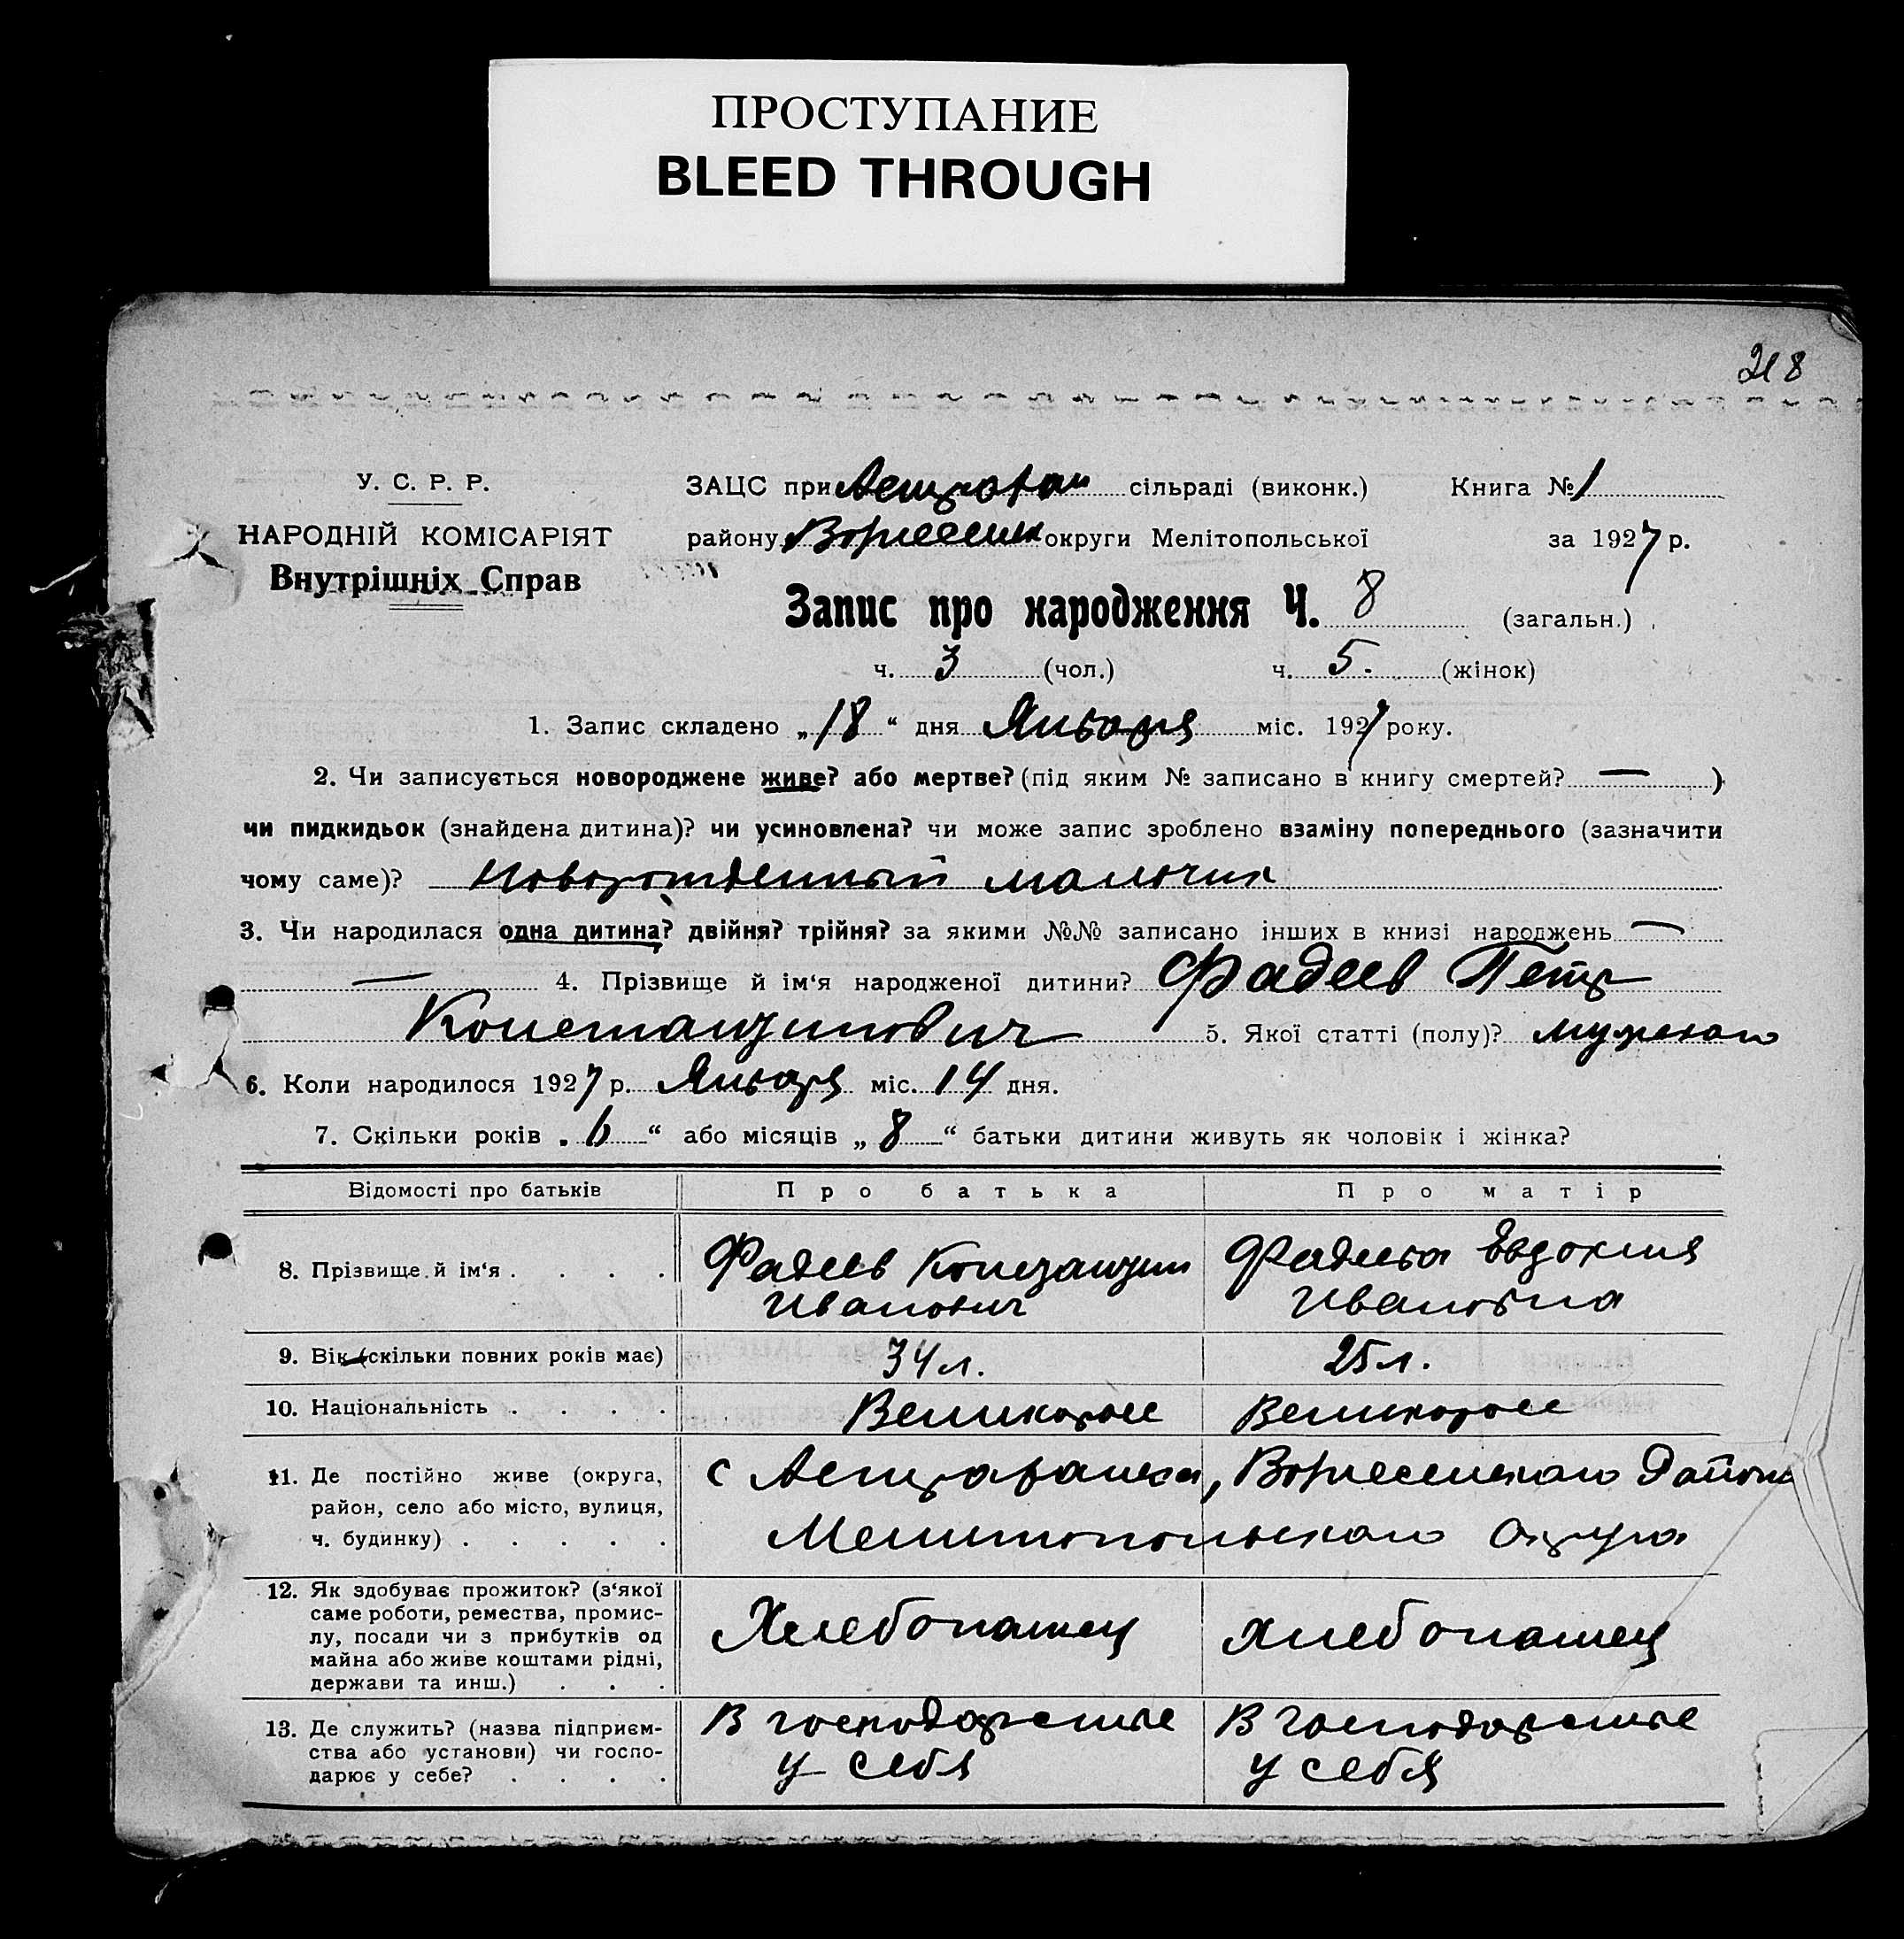 ПРОСТУПАНИЕ
BLEED THROUGH
218
У. С. Р. Р.
НАРОДНІЙ КОМІСАРІЯТ
Внутрішніх Справ
ЗАЦС при Астрахан сільраді (виконк.) Книга № 1
району Вознесенск округи Мелітопольської за 1927 р.
Запис про народження Ч. 8 (загальн.)
ч. 3 (чол.) ч. 5. (жінок)
1. Запис складено „18“ дня Января міс. 1927 року.
2. Чи записується новороджене живе? або мертве? (під яким № записано в книгу смертей? — )
чи пидкидьок (знайдена дитина)? чи усиновлена? чи може запис зроблено взаміну попереднього (зазначити
чому саме)? Новорожденный мальчик
3. Чи народилася одна дитина? двійня? трійня? за якими №№ записано інших в книзі народжень —
— 4. Прізвище й ім‘я народженої дитини? Фадеев Петр
Константинович 5. Якої статті (полу)? мужского
6. Коли народилося 1927 р. Января міс. 14 дня.
7. Скільки років „6“ або місяців „8“ батьки дитини живуть як чоловік і жінка?
Відомості про батьків Про батька Про матір
8. Прізвище й ім‘я . . . . Фадеев Константин Фадеева Евдокия
Иванович Ивановна
9. Вік (скільки повних років має) 34 л. 25 л.
10. Національність . . . . Великоросс Великоросс
11. Де постійно живе (округа, с Астраханка, Вознесенского Района
район, село або місто, вулиця,
ч. будинку) . . . . . Мелитопольского Округа
12. Як здобуває прожиток? (з‘якої
саме роботи, ремества, промис-
лу, посади чи з прибутків од Хлебопашец Хлебопашец
майна або живе коштами рідні,
держави та инш.) . . .
13. Де служить? (назва підприєм- В господарстве В господарстве
ства або установи) чи госпо-
дарює у себе? . . . . у себя у себя